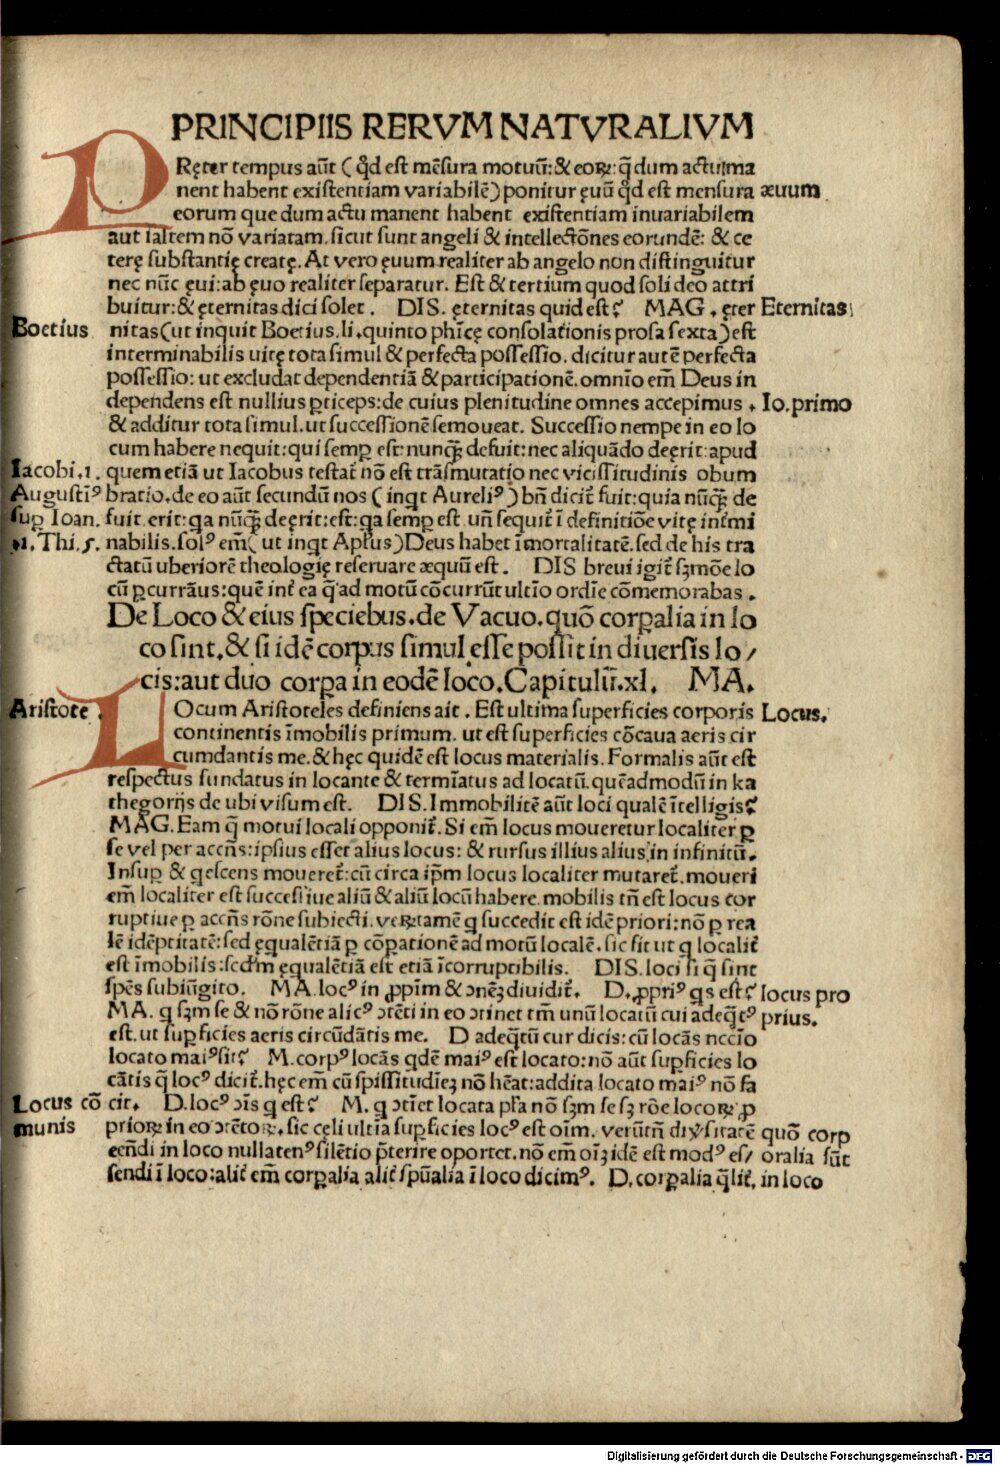 PRINCIPIIS RERVM NATVRALIVM
PRęter tempus aūt (qd̄ est mēsura motuū:& eoꝝ: q̄ dum actu ma
nent habent existentiam variabilē) ponitur ęuū qd̄ est mensura æuum
eorum que dum actu manent habent existentiam inuariabilem
aut saltem nō variatam. sicut sunt angeli & intellectōnes eorundē: & ce
terę substantię creatę. At vero ęuum realiter ab angelo non distinguitur
nec nūc ęui: ab ęuo realiter separatur. Est & tertium quod soli deo attri
buitur: & ęternitas dici solet. DIS. ęternitas quid est? MAG. ęter Eternitas
Boetius nitas (ut inquit Boetius. li. quinto phīcę consolationis prosa sexta) est
interminabilis uitę tota simul & perfecta possessio. dicitur autē perfecta
possessio: ut excludat dependentiā & participationē. omnīo em̄ Deus in
dependens est nullius ꝑticeps: de cuius plenitudine omnes accepimus. Io. primo
& additur tota simul. ut successionē semoueat. Successio nempe in eo lo
cum habere nequit: qui semꝑ est: nunqꝫ̄ defuit: nec aliquādo deęrit: apud
Iacobi. 1. quem etiā ut Iacobus testat̄ nō est trāsmutatio nec vicissitudinis obum
Augustīꝰ bratio. de eo aūt secundū nos (inqt Aureliꝰ) bn̄ dicit̄ fuit: quia nūqꝫ̄ de
sup Ioan. fuit. erit: qa nūqꝫ̄ deęrit: est: qa semꝑ est. un̄ sequit̄ ī definitiōe vitę int̄mi
.1. Thi. 5. nabilis. solꝰ em̄ (ut inqt Apl̄us) Deus habet īmortalitatē. sed de his tra
ctatū uberiorē theologię reseruare æquū est. DIS breui igit̄ sꝫmōe lo
cū ꝑcurrāus: quē int̄ ea q̄ ad motū cōcurrūt ultīo ordīe cōmemorabas.
De Loco & eius speciebus. de Vacuo. quō corꝑalia in lo
co sint. & si idē corpus simul esse possit in diuersis lo/
cis: aut duo corꝑa in eodē loco. Capitulū. xl. MA.
Aristote. LOcum Aristoteles definiens ait. Est ultima superficies corporis Locus.
continentis īmobilis primum. ut est superficies cōcaua aeris cir
cumdantis me. & hęc quidē est locus materialis. Formalis aūt est
respectus fundatus in locante & termīatus ad locatū. quēadmodū in ka
thegorijs de ubi visum est. DIS. Immobilitē aūt loci qualē ītelligis?
MAG. Eam q̄ motui locali opponit̄. Si em̄ locus moueretur localiter ꝑ
se vel per accn̄s: ipsius esset alius locus: & rursus illius alius in infinitū.
Insuꝑ & qescens moueret̄: cū circa ip̄m locus localiter mutaret̄. moueri
em̄ localiter est successiue aliū & aliū locū habere. mobilis tn̄ est locus cor
ruptiue ꝑ accn̄s rōne subiecti. veꝝtamē q succedit est idē priori: nō ꝑ rea
lē idēptitatē: sed ęqualētiā ꝑ cōꝑationē ad motū localē. sic fit ut q localit̄
est īmobilis: scd̄m ęqualētiā est etiā īcorruptibilis. DIS. loci si q̄ sint
spēs subiūgito. MA. locꝰ in ꝓpīm & ↄnēꝫ diuidit̄. D. ꝓpriꝰ qs est? locus pro
MA. q sꝫm se & nō rōne alicꝰ ↄtēti in eo ↄtinet tm̄ unū locatū cui adeq̄tꝰ prius.
est. ut suꝑficies aeris circūdātis me. D adeq̄tū cur dicis: cū locās nccīo
locato maiꝰ sit? M. corpꝰ locās qdē maiꝰ est locato: nō aūt suꝑficies lo
cātis q̄ locꝰ dicit̄. hęc em̄ cū spissitudīeꝫ nō hēat: addita locato maiꝰ nō fa
Locus cō cit. D. locꝰ ↄīs q est? M. q ↄtīet locata pl̄ra nō sꝫm se sꝫ rōe locoꝝ ꝓ
munis prioꝝ in eo ↄtētoꝝ. sic cęli ultīa suꝑficies locꝰ est oīm. verūtn̄ diꝟsitatē quō corp
ecn̄di in loco nullatenꝰ silētio p̄terire oportet. nō em̄ oīꝫ idē est modꝰ es/ oralia sūt
sendi ī loco: alit̄ em̄ corꝑalia alit̄ spūalia ī loco dicimꝰ. D. corꝑalia q̄lit̄. in loco
Digitalisierung gefördert durch die Deutsche Forschungsgemeinschaft - DFG